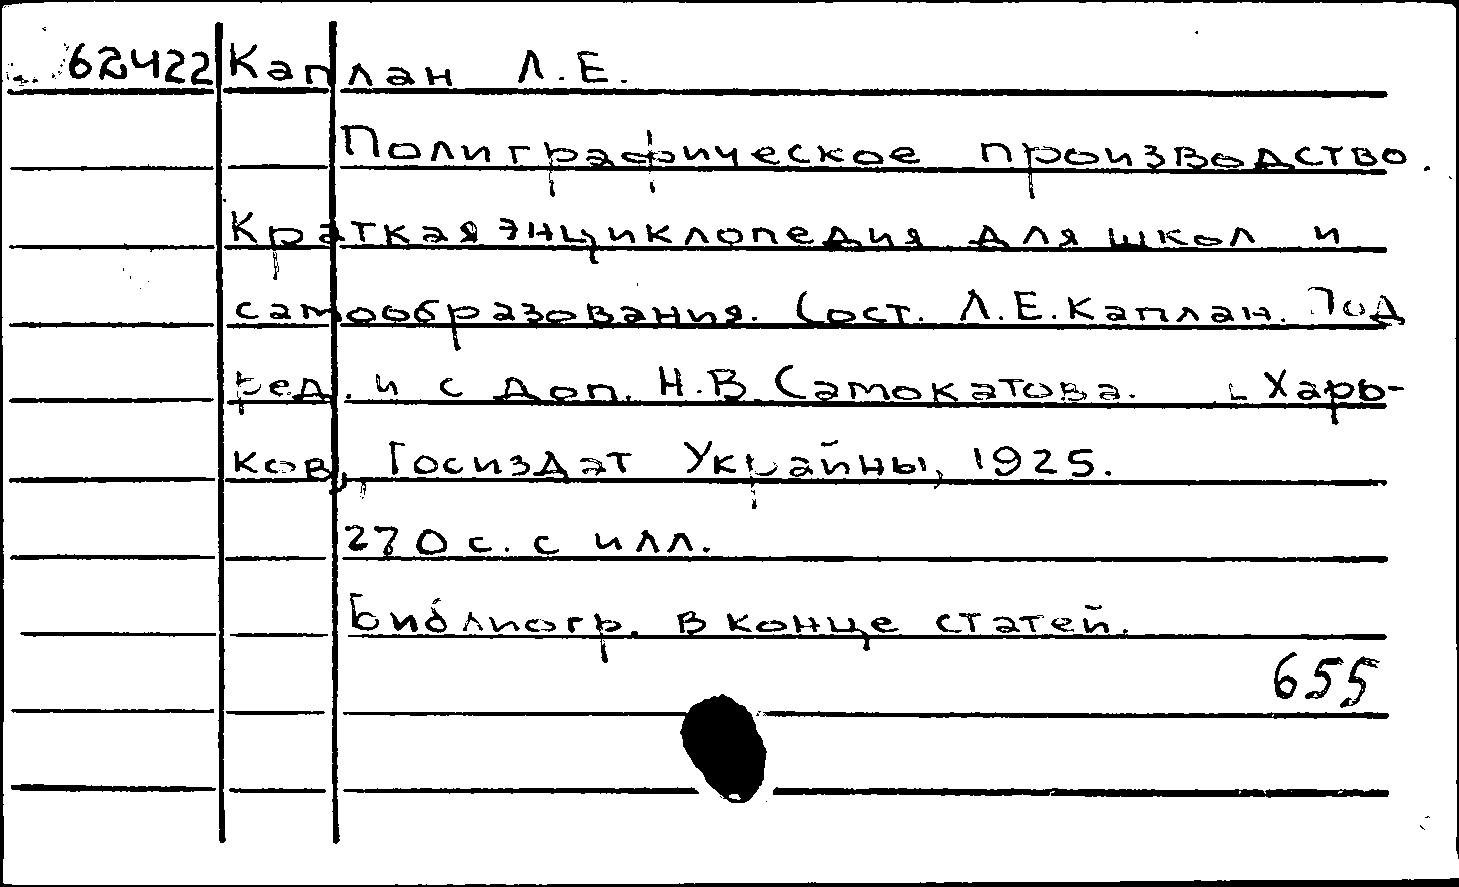 62422 Каплан Л.Е.
Полиграфическое производство.
Краткая энциклопедия для школ и
самообразования. Сост. Л.Е.Каплан. Под
ред. и с доп. Н.В.Самокатова. Харь-
ков, Госиздат Украйны, 1925.
270 с. с илл.
Библиогр. в конце статей.
655